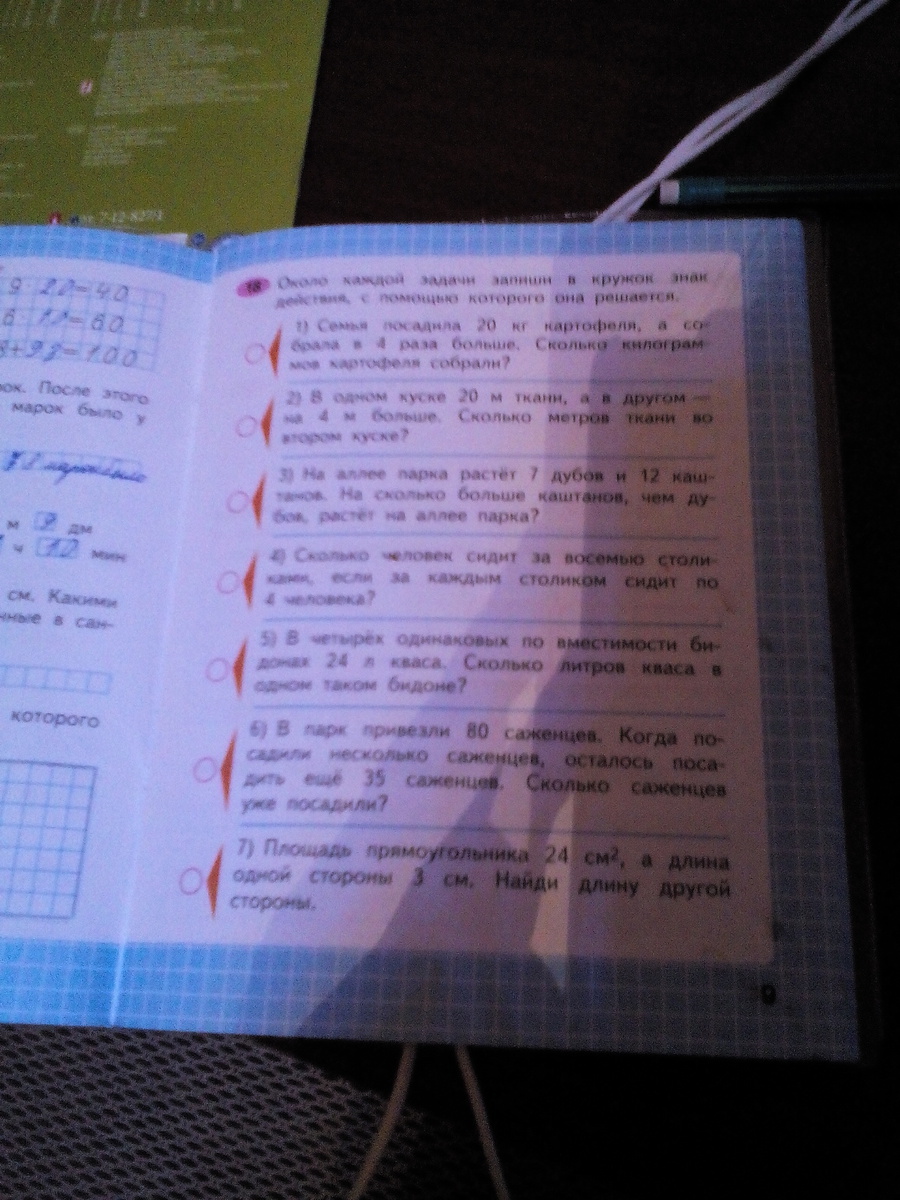 7-12-827/1
9 20=40
11=60
=100
рок. После этого
марок было у
м 9 дм
ч 12 мин
см. Какими
нные в сан-
которого
18 Около каждой задачи запиши в кружок знак
действия, с помощью которого она решается.
1) Семья посадила 20 кг картофеля, а со-
брала в 4 раза больше. Сколько килограм-
мов картофеля собрали?
2) В одном куске 20 м ткани, а в другом —
на 4 м больше. Сколько метров ткани во
втором куске?
3) На аллее парка растёт 7 дубов и 12 каш-
танов. На сколько больше каштанов, чем ду-
бов, растёт на аллее парка?
4) Сколько человек сидит за восемью столи-
ками, если за каждым столиком сидит по
4 человека?
5) В четырёх одинаковых по вместимости би-
донах 24 л кваса. Сколько литров кваса в
одном таком бидоне?
6) В парк привезли 80 саженцев. Когда по-
садили несколько саженцев, осталось поса-
дить ещё 35 саженцев. Сколько саженцев
уже посадили?
7) Площадь прямоугольника 24 см², а длина
одной стороны 3 см. Найди длину другой
стороны.
9